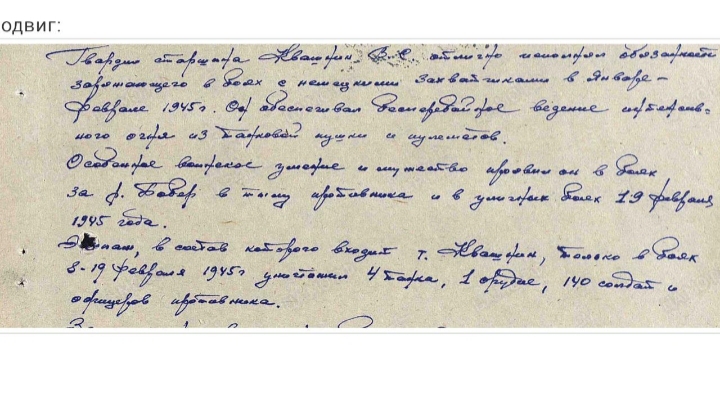 одвиг:
Гвардии старшина Квашнин В.С. отлично исполнял обязанности
заряжающего в боях с немецкими захватчиками в январе-
феврале 1945 г. Он обеспечивал бесперебойное ведение интенсив-
ного огня из танковой пушки и пулеметов.
Особенное воинское умение и мужество проявил он в боях
за р. Бобер в тылу противника и в уличных боях 19 февраля
1945 года.
Экипаж, в состав которого входит т. Квашнин, только в боях
8-19 февраля 1945 г уничтожил 4 танка, 1 орудие, 140 солдат и
офицеров противника.